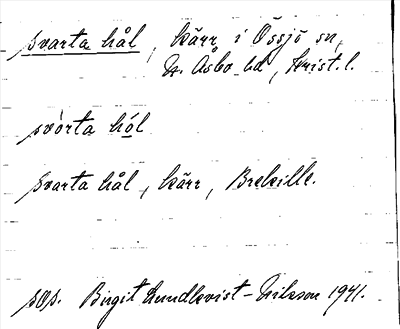 svarta hål, kärr i Össjö sn,
N. Åsbo hd, Krist. l.
svòrta hól
Svarta hål, kärr, Brekille.
pop. Birgit Lundkvist-Nilsson 1941.